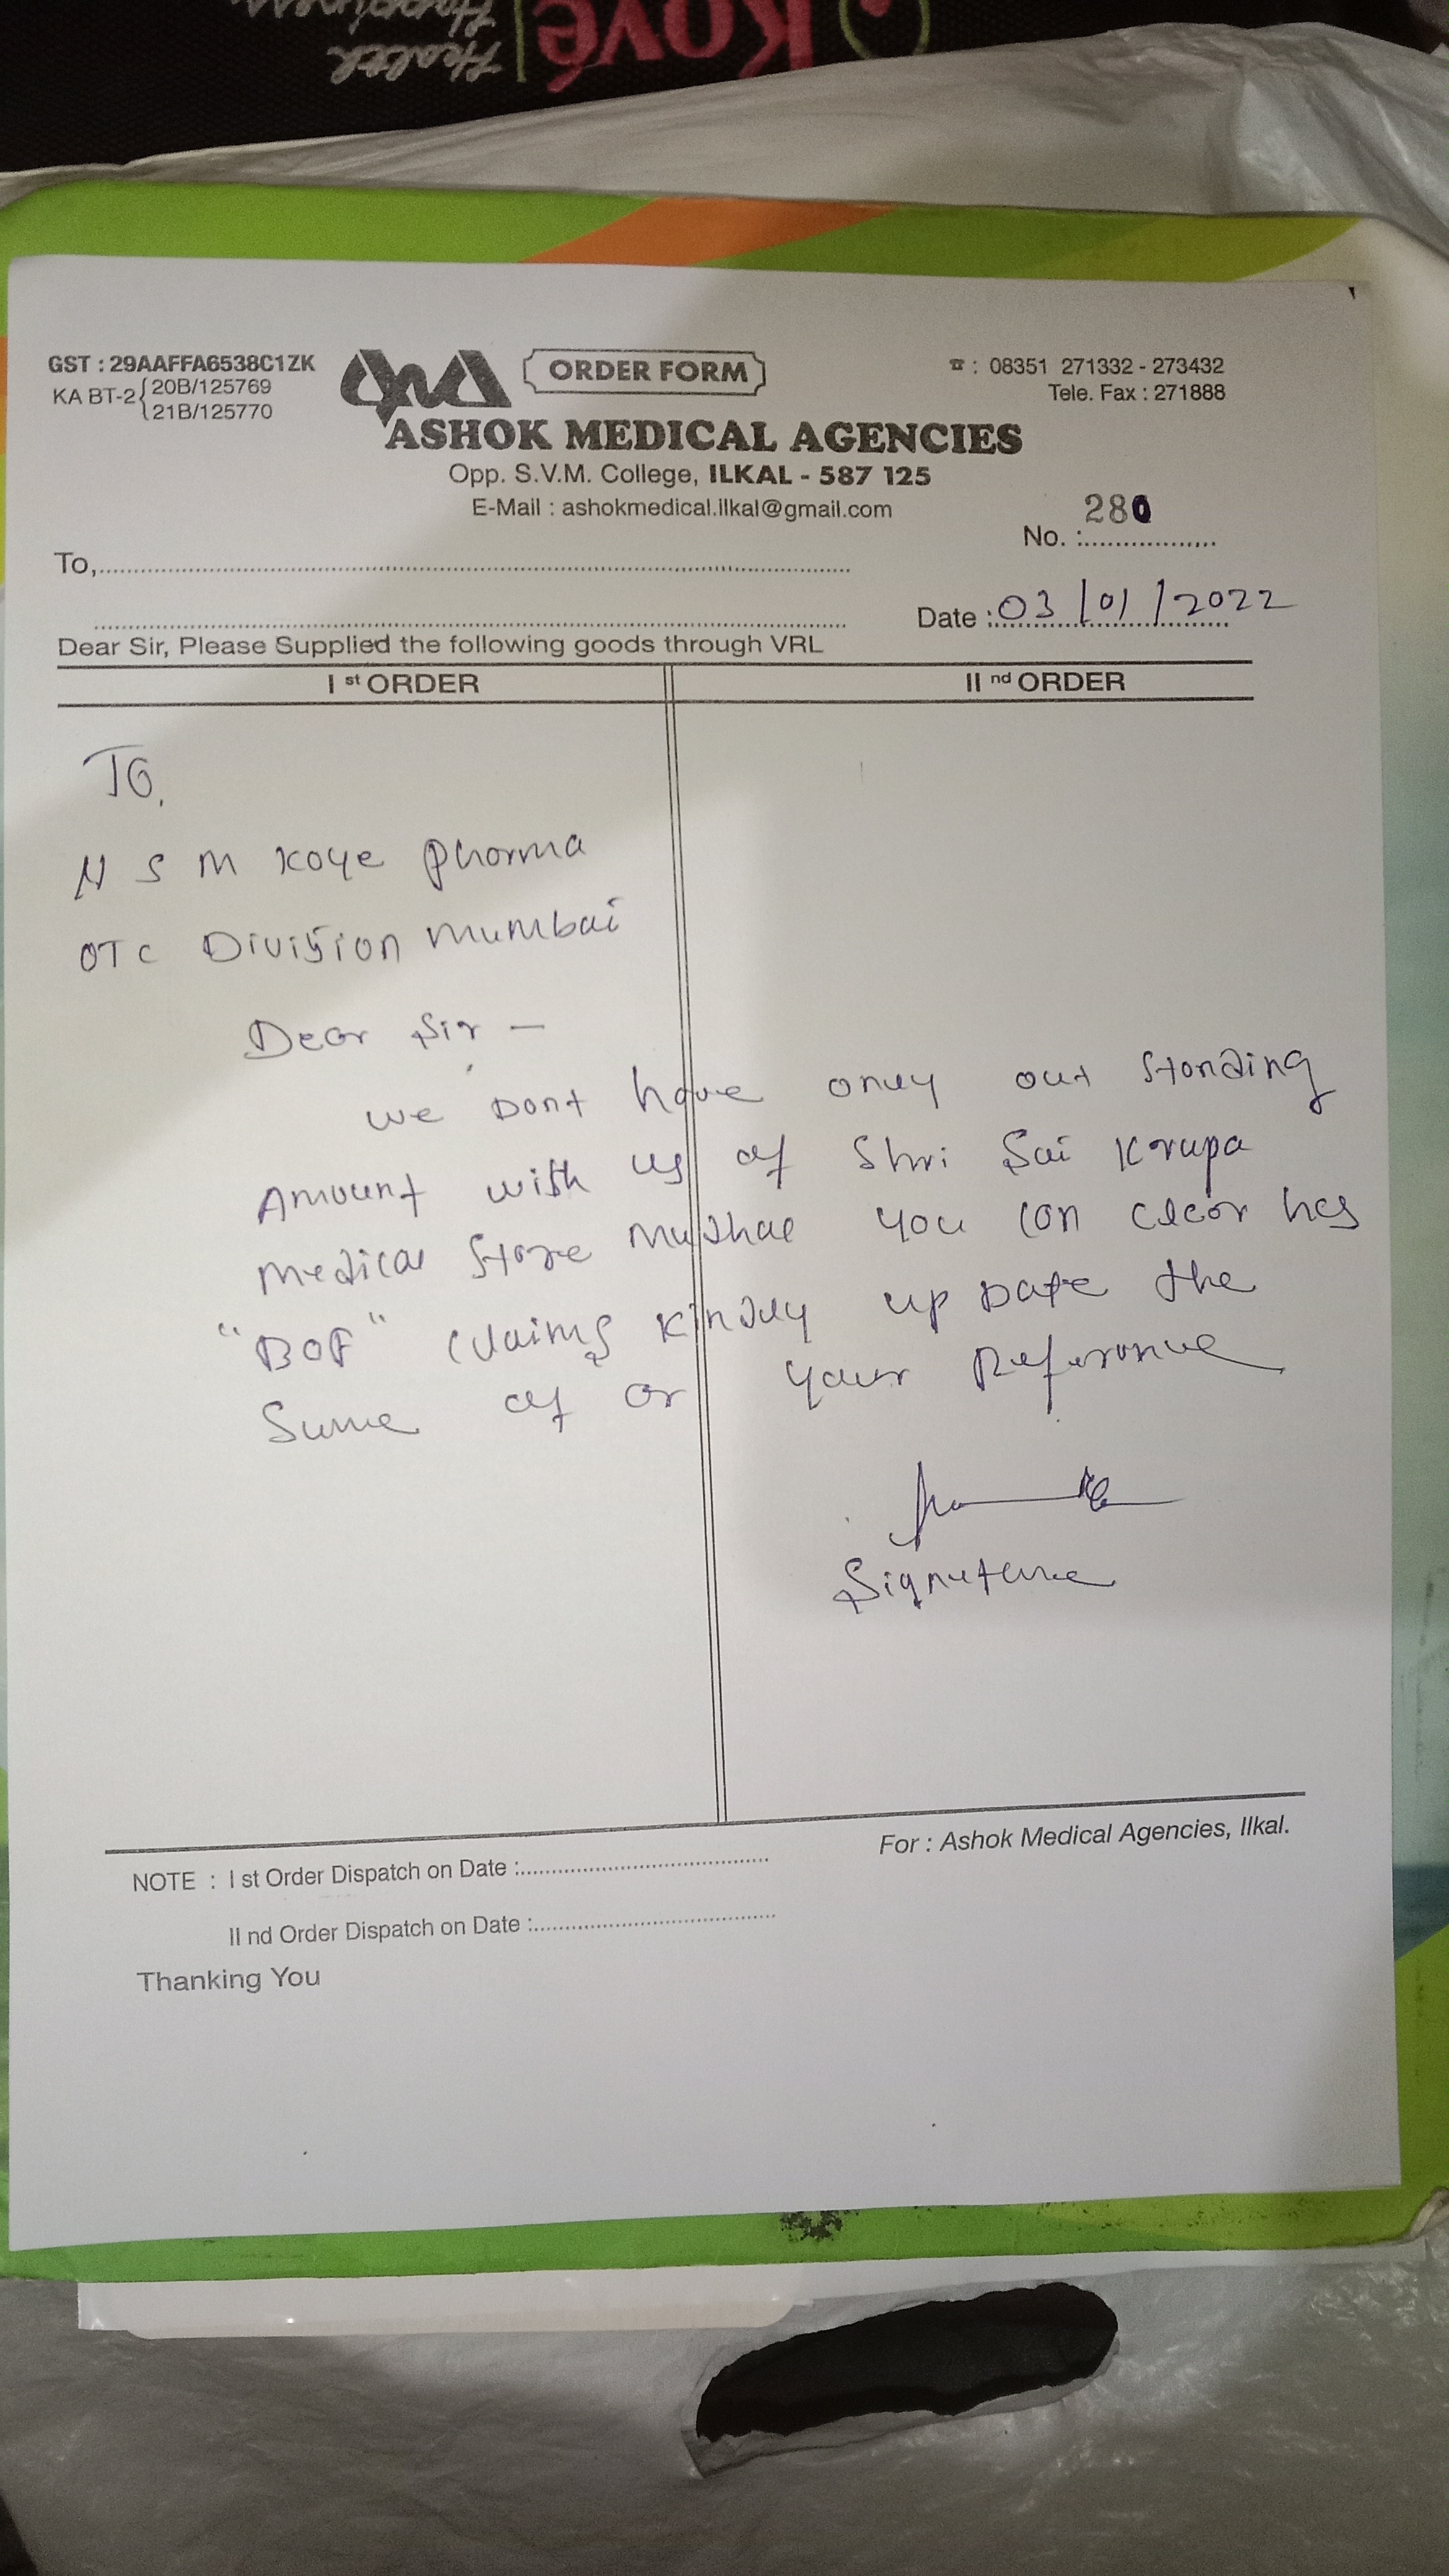 Health
Happiness
Kové
GST : 29AAFFA6538C1ZK
KA BT-2 { 20B/125769
21B/125770
ama
ORDER FORM
☎ : 08351 271332 - 273432
Tele. Fax : 271888
ASHOK MEDICAL AGENCIES
Opp. S.V.M. College, ILKAL - 587 125
E-Mail : ashokmedical.ilkal@gmail.com
No. : 280
To,
Date : 03/01/2022
Dear Sir, Please Supplied the following goods through VRL
I st ORDER
II nd ORDER
To,
H S M Koye pharma
OTC Division mumbai
Dear Sir -
we Dont have oney out standing
Amount with us of Shri Sai Krupa
medical Store you can clear his
"BOF" claims kindly up Date the
Sume of or your Referonce
Signeture
For : Ashok Medical Agencies, Ilkal.
NOTE : I st Order Dispatch on Date :
II nd Order Dispatch on Date :
Thanking You